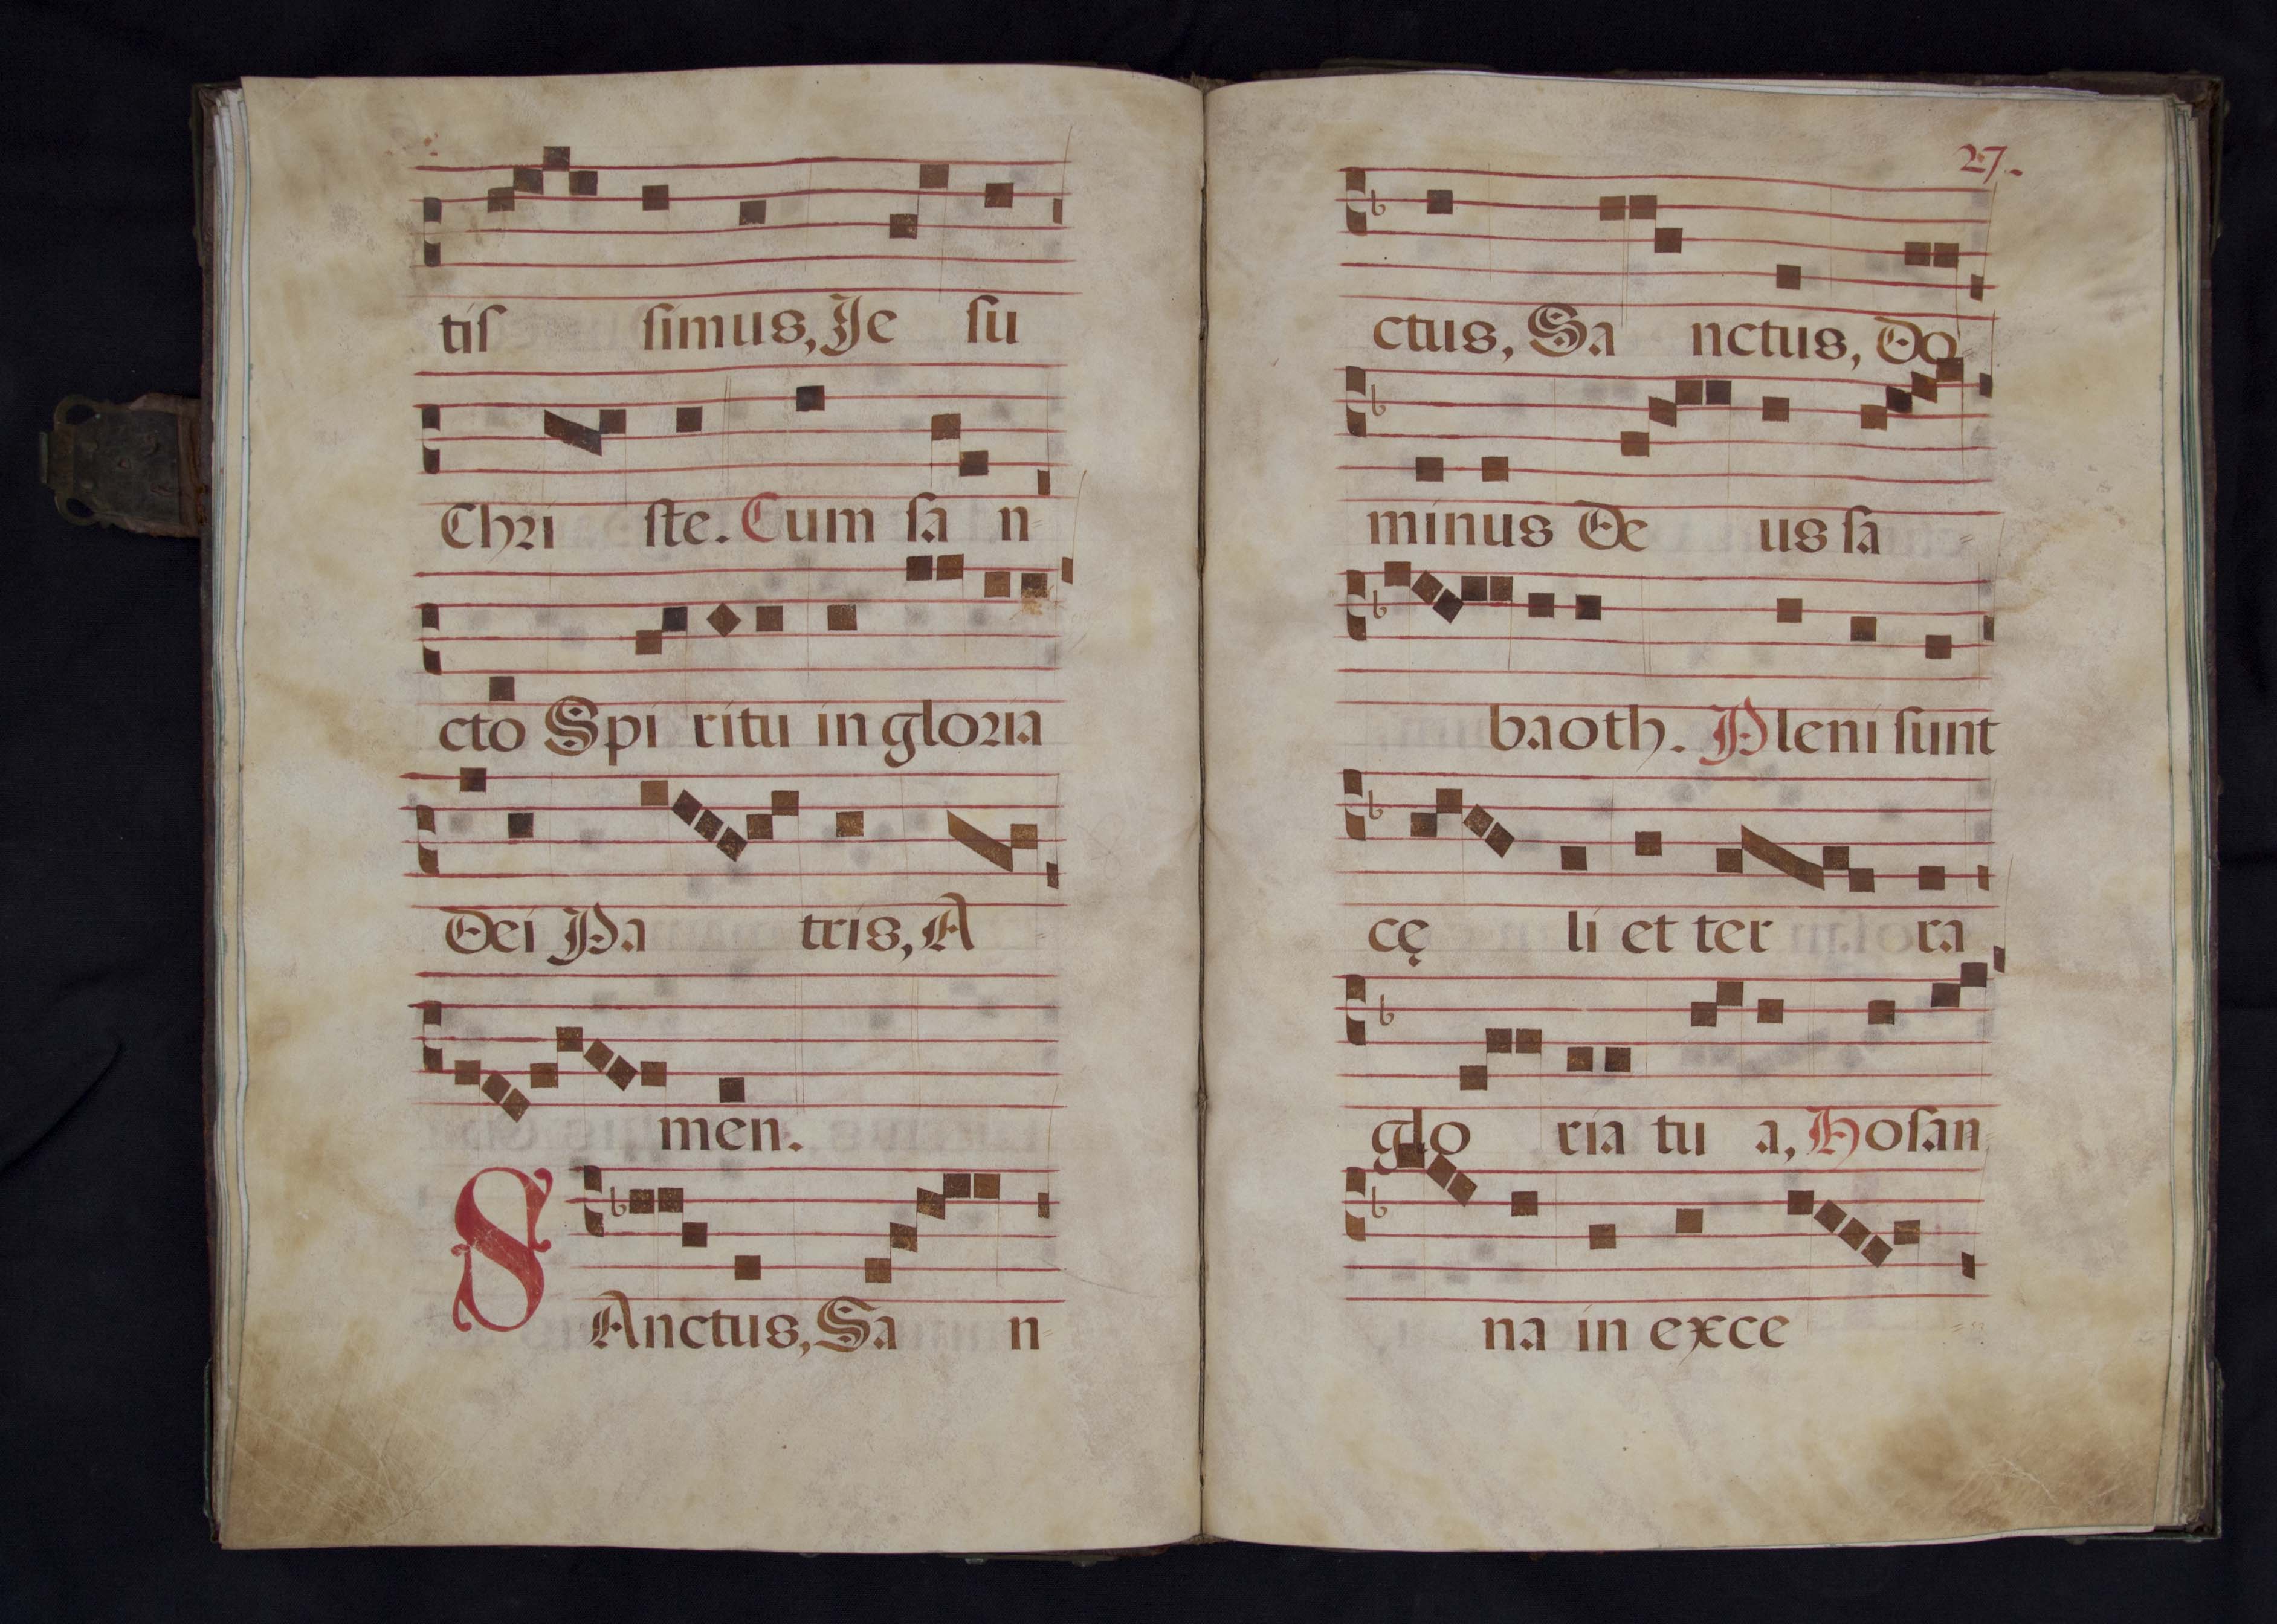 tiſ ſimus, Je ſu
Chri ſte. Cum ſa n=
cto Spi ritu in gloria
Dei Pa tris, A=
men.
SAnctus, Sa n=
27.
ctus, Sa nctus, Do
minus De us ſa=
baoth. Pleni ſunt
cę li et ter ra
glo ria tu a, Hoſan
na in exce=